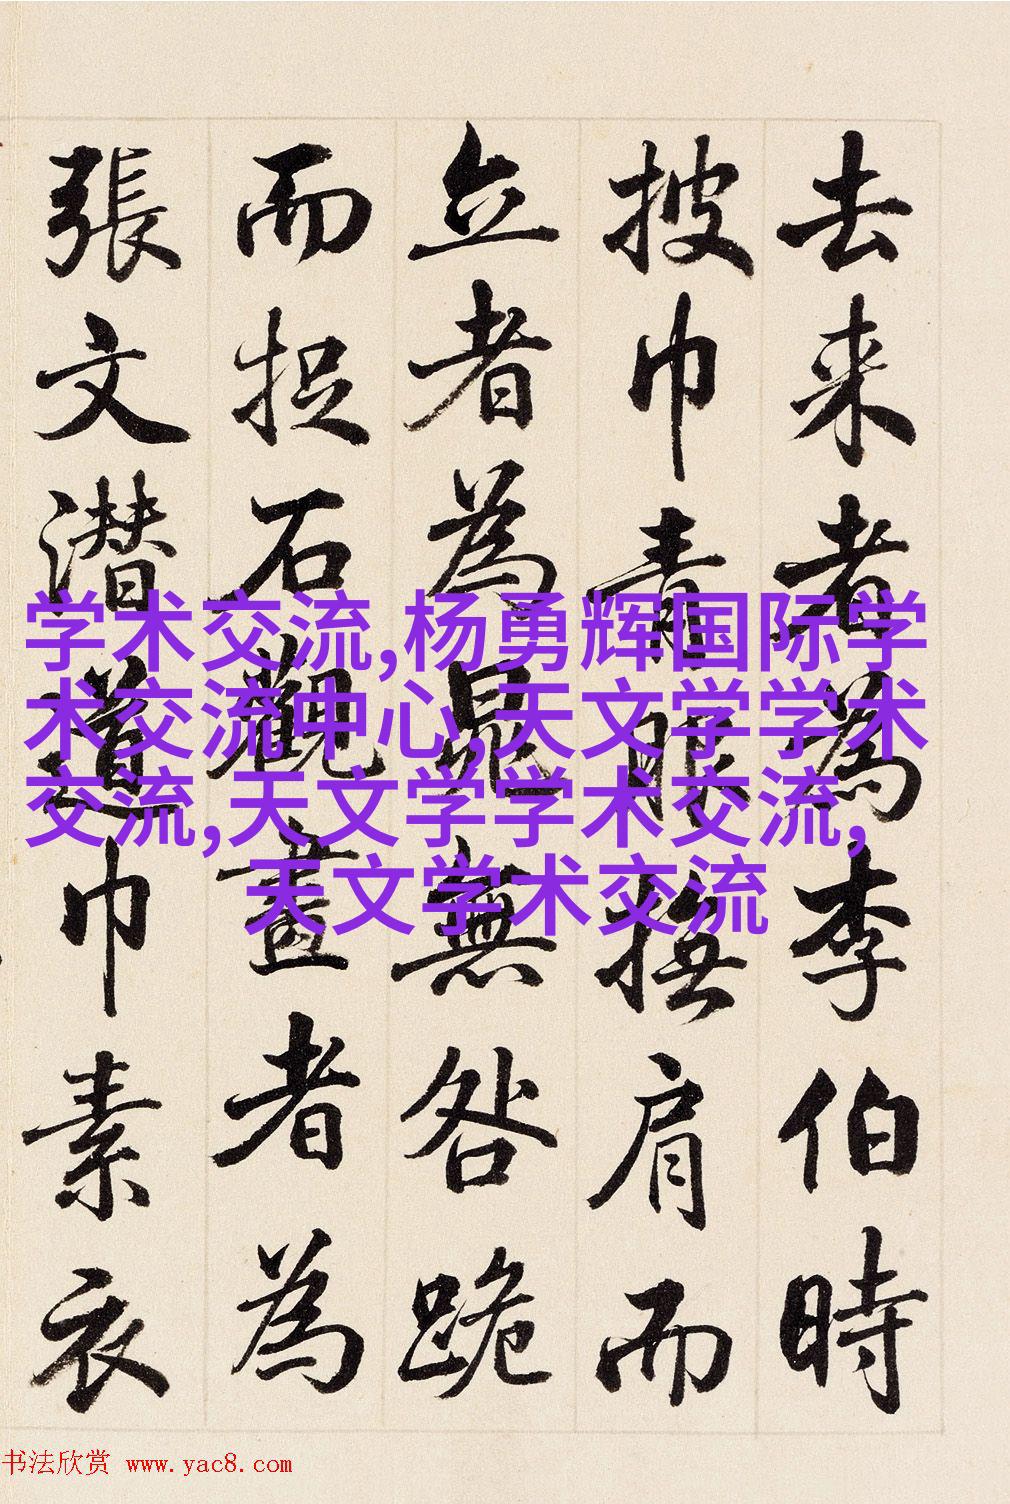 去来者為李伯時
披巾青服撫肩而
立者為晁無咎跪
而捉石觀畫者為
張文潜道巾素衣
学术交流,杨勇辉国际学
术交流中心,天文学学术
交流,天文学学术交流,
天文学术交流
书法欣赏 www.yac8.com